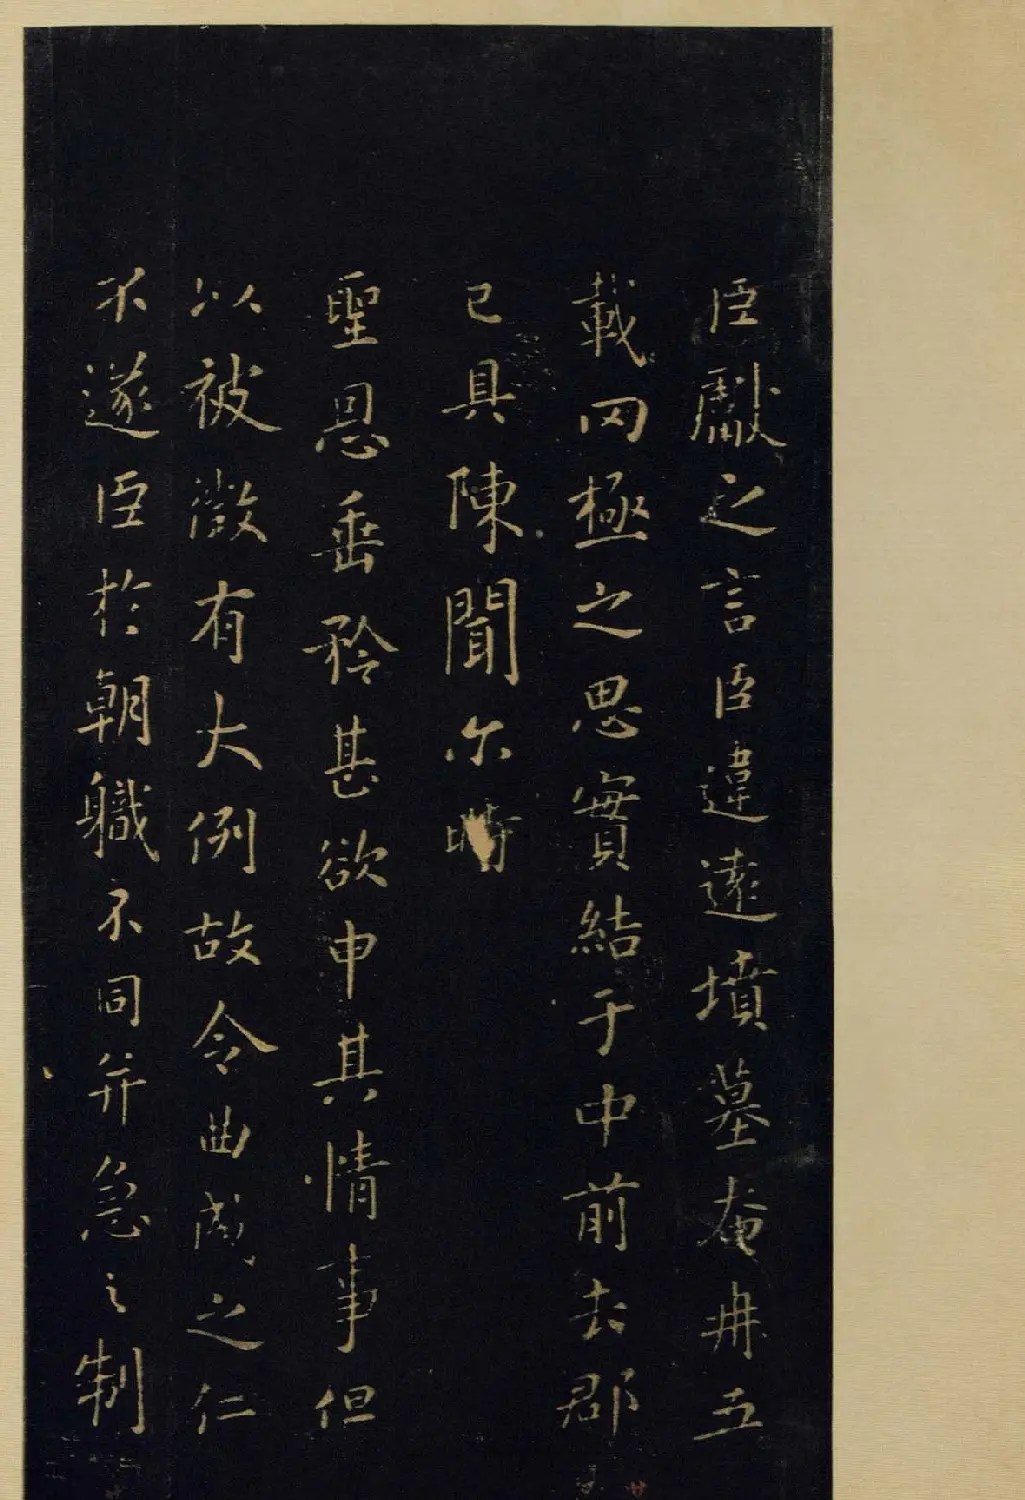 臣獻之言臣違遠墳墓奄冉五
載罔極之思實結于中前去郡
已具陳聞尓時
聖恩垂矜甚欲申其情事但
以被徵有大例故令曲成之仁
不遂臣於朝職不同并急之制